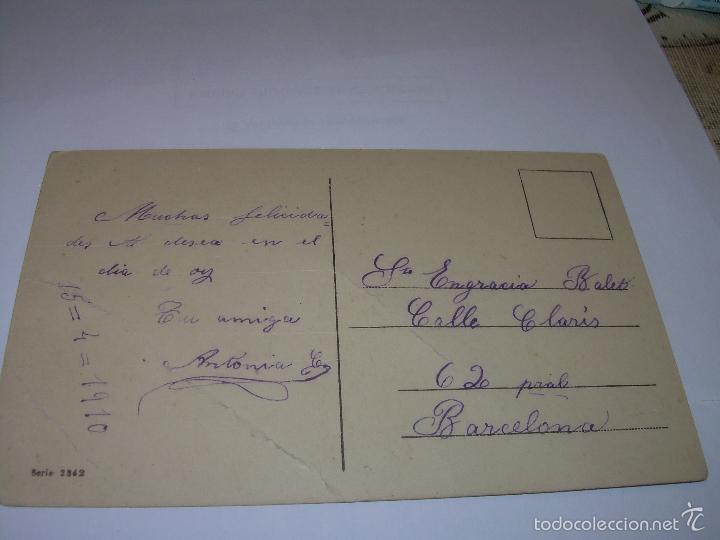 Muchas felicida=
des te desea en el
dia de oy
Tu amiga
Antonia
15=4=1910
Serie 2842
Sta Engracia Balet
Calle Claris
62o pral
Barcelona
todocoleccion.net